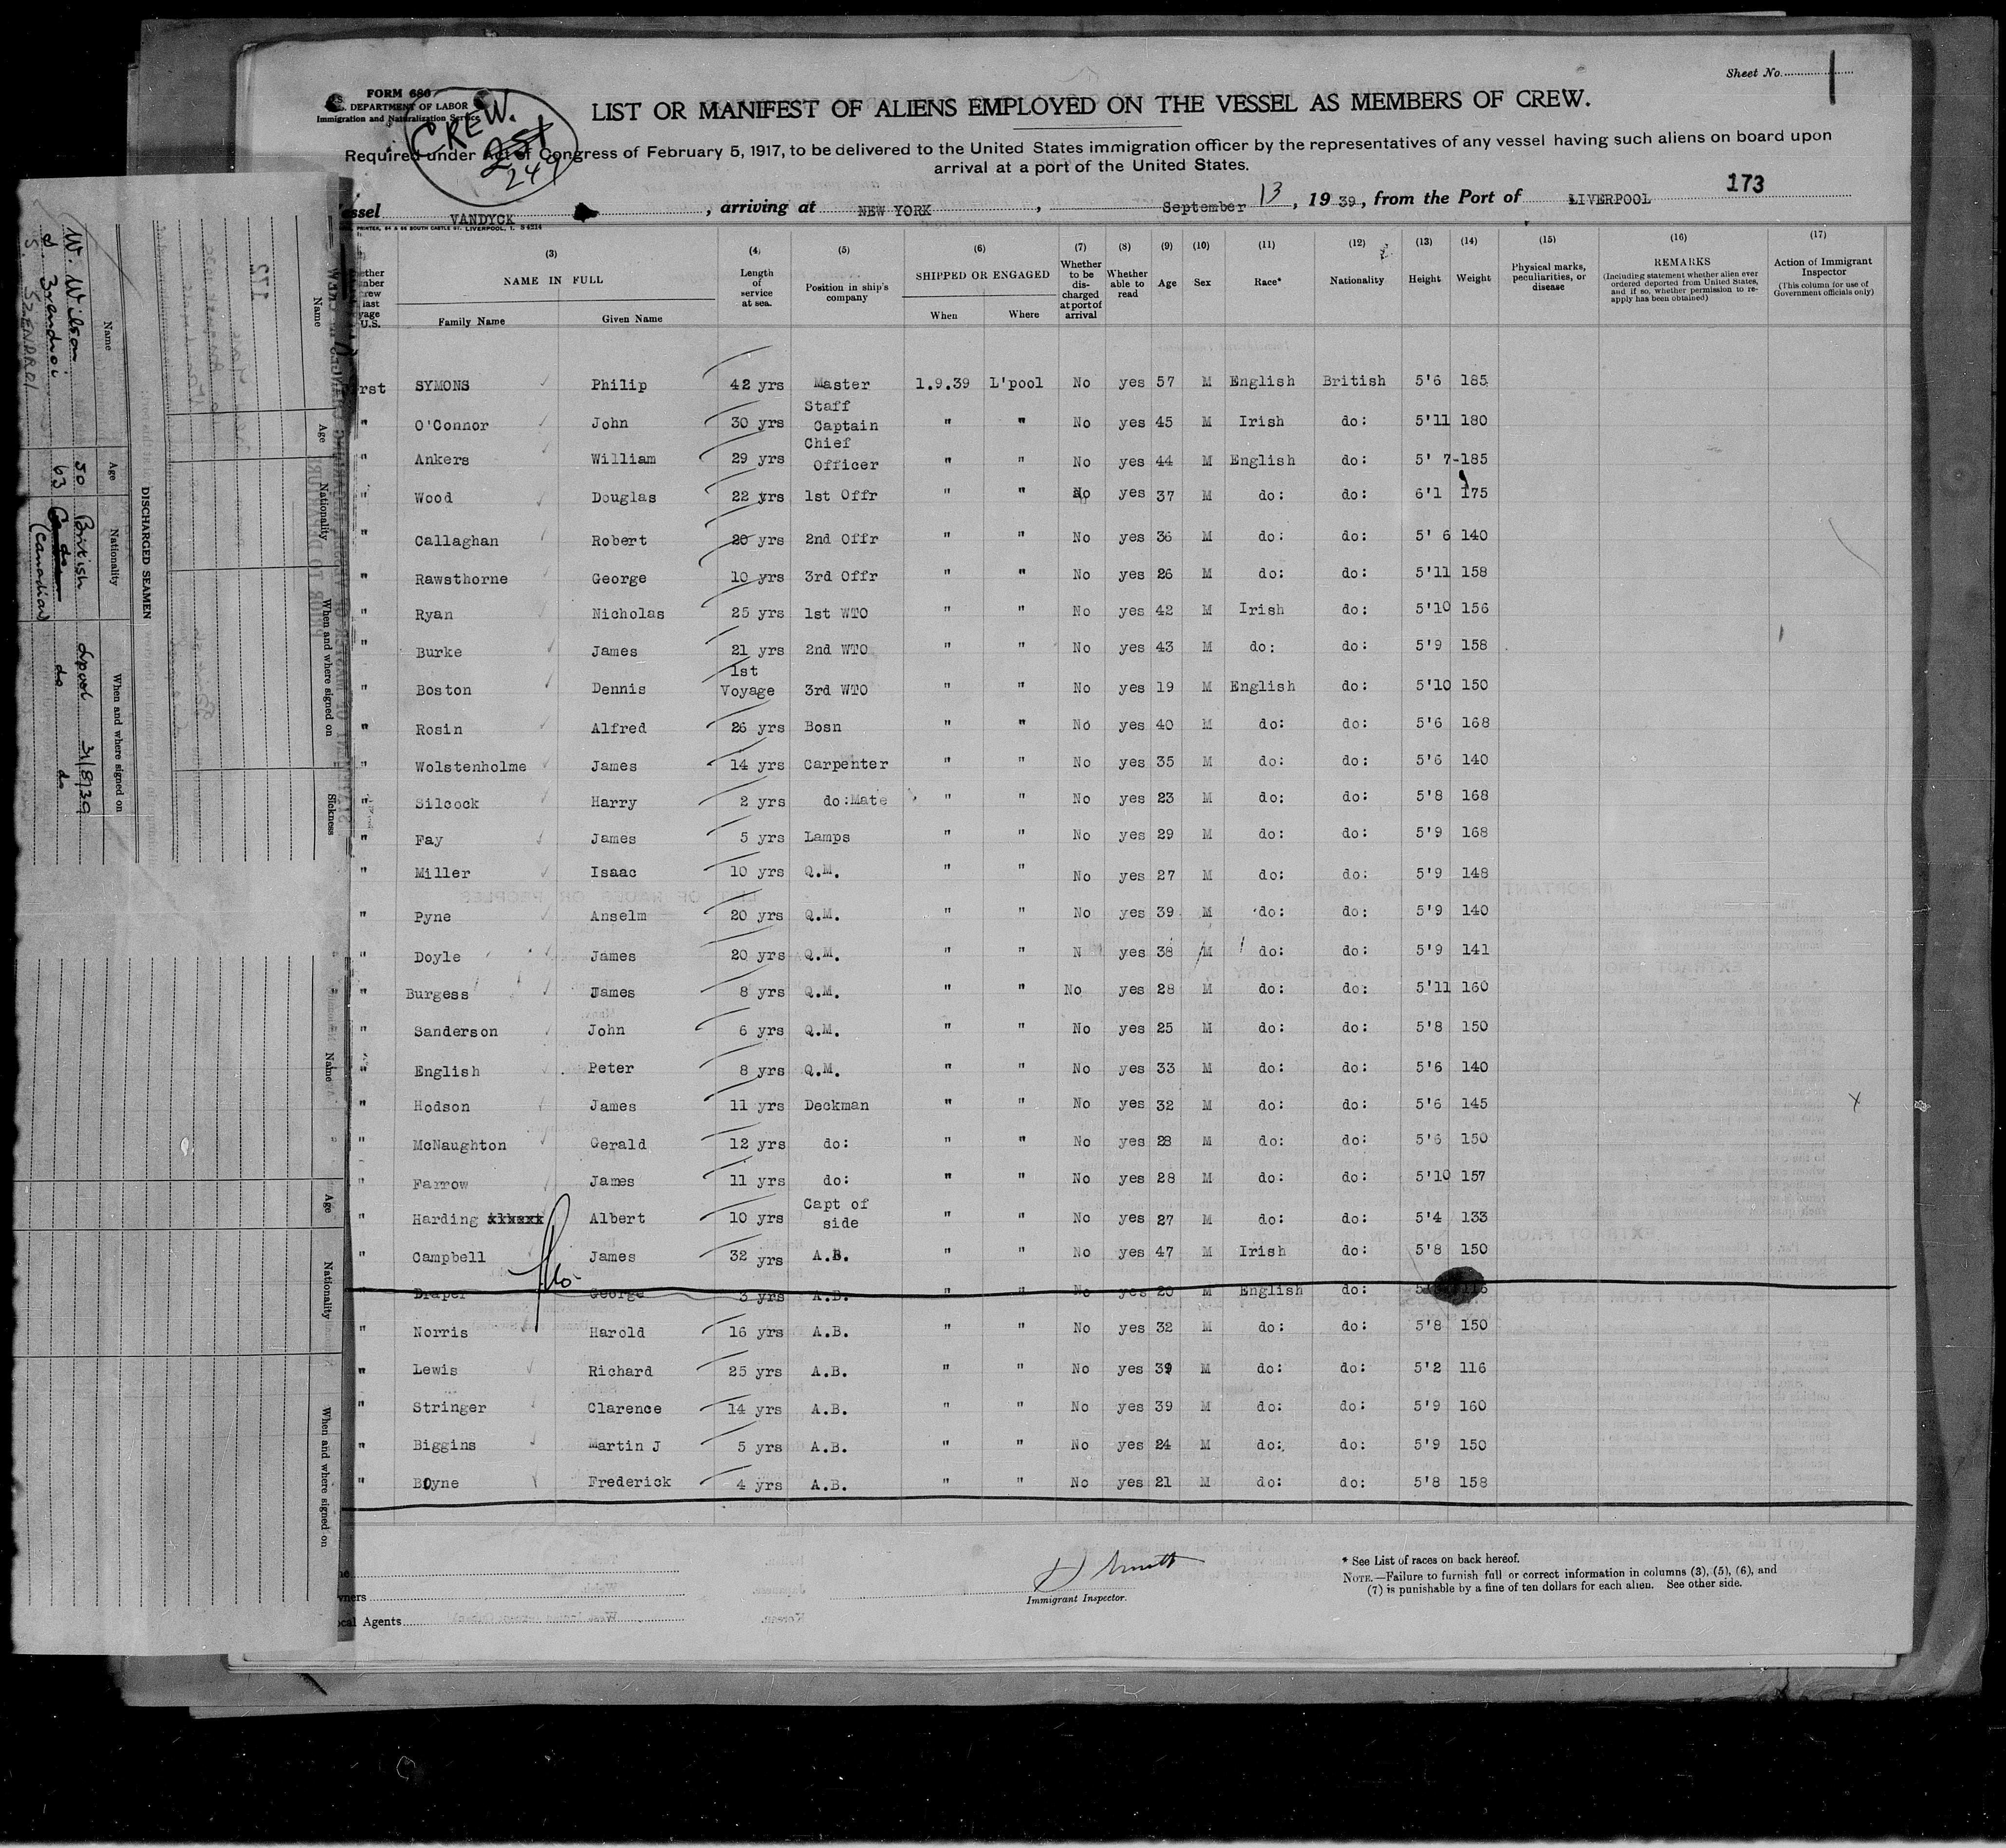 Sheet No. 1
FORM 680
DEPARTMENT OF LABOR
Immigration and Naturalization Service
CREW.
249
LIST OR MANIFEST OF ALIENS EMPLOYED ON THE VESSEL AS MEMBERS OF CREW.
Required under Act of Congress of February 5, 1917, to be delivered to the United States immigration officer by the representatives of any vessel having such aliens on board upon
arrival at a port of the United States.
173
essel VANDYCK, arriving at NEW YORK, September 13, 1939, from the Port of LIVERPOOL
PRINTER, 64 & 66 SOUTH CASTLE ST. LIVERPOOL, 1. S4214
(3) (4) (5) (6) (7) (8) (9) (10) (11) (12) (13) (14) (15) (16) (17)
NAME IN FULL
Family Name Given Name
Length of service at sea.
Position in ship's company
SHIPPED OR ENGAGED
When Where
Whether to be discharged at port of arrival
Whether able to read
Age
Sex
Race*
Nationality
Height
Weight
Physical marks, peculiarities, or disease
REMARKS
(Including statement whether alien ever ordered deported from United States, and if so, whether permission to reapply has been obtained)
Action of Immigrant Inspector
(This column for use of Government officials only)
rst SYMONS Philip 42 yrs Master 1.9.39 L'pool No yes 57 M English British 5'6 185
" O'Connor John 30 yrs Staff Captain " " No yes 45 M Irish do: 5'11 180
" Ankers William 29 yrs Chief Officer " " No yes 44 M English do: 5' 7-185
" Wood Douglas 22 yrs 1st Offr " " No yes 37 M do: do: 6'1 175
" Callaghan Robert 20 yrs 2nd Offr " " No yes 36 M do: do: 5' 6 140
" Rawsthorne George 10 yrs 3rd Offr " " No yes 26 M do: do: 5'11 158
" Ryan Nicholas 25 yrs 1st WTO " " No yes 42 M Irish do: 5'10 156
" Burke James 21 yrs 2nd WTO " " No yes 43 M do: do: 5'9 158
" Boston Dennis 1st Voyage 3rd WTO " " No yes 19 M English do: 5'10 150
" Rosin Alfred 26 yrs Bosn " " No yes 40 M do: do: 5'6 168
" Wolstenholme James 14 yrs Carpenter " " No yes 35 M do: do: 5'6 140
" Silcock Harry 2 yrs do:Mate " " No yes 23 M do: do: 5'8 168
" Fay James 5 yrs Lamps " " No yes 29 M do: do: 5'9 168
" Miller Isaac 10 yrs Q.M. " " No yes 27 M do: do: 5'9 148
" Pyne Anselm 20 yrs Q.M. " " No yes 39 M do: do: 5'9 140
" Doyle James 20 yrs Q.M. " " N yes 38 M do: do: 5'9 141
" Burgess James 8 yrs Q.M. " " No yes 28 M do: do: 5'11 160
" Sanderson John 6 yrs Q.M. " " No yes 25 M do: do: 5'8 150
" English Peter 8 yrs Q.M. " " No yes 33 M do: do: 5'6 140
" Hodson James 11 yrs Deckman " " No yes 32 M do: do: 5'6 145
" McNaughton Gerald 12 yrs do: " " No yes 28 M do: do: 5'6 150
" Farrow James 11 yrs do: " " No yes 28 M do: do: 5'10 157
" Harding Albert 10 yrs Capt of side " " No yes 27 M do: do: 5'4 133
" Campbell James 32 yrs A.B. " " No yes 47 M Irish do: 5'8 150
" Draper George 3 yrs A.B. " " No yes 20 M English do:
" Norris Harold 16 yrs A.B. " " No yes 32 M do: do: 5'8 150
" Lewis Richard 25 yrs A.B. " " No yes 39 M do: do: 5'2 116
" Stringer Clarence 14 yrs A.B. " " No yes 39 M do: do: 5'9 160
" Biggins Martin J 5 yrs A.B. " " No yes 24 M do: do: 5'9 150
" Boyne Frederick 4 yrs A.B. " " No yes 21 M do: do: 5'8 158
Immigrant Inspector.
* See List of races on back hereof.
NOTE.—Failure to furnish full or correct information in columns (3), (5), (6), and
(7) is punishable by a fine of ten dollars for each alien. See other side.
wners
ocal Agents
DISCHARGED SEAMEN
Name Age Nationality When and where signed on
W. Wilson 50 British Lpool 31/8/39
S. Szendroi 63 (Canadian) do do
S. SZENDROI
Name Age Nationality When and where signed on Sickness
Name Age Nationality When and where signed on